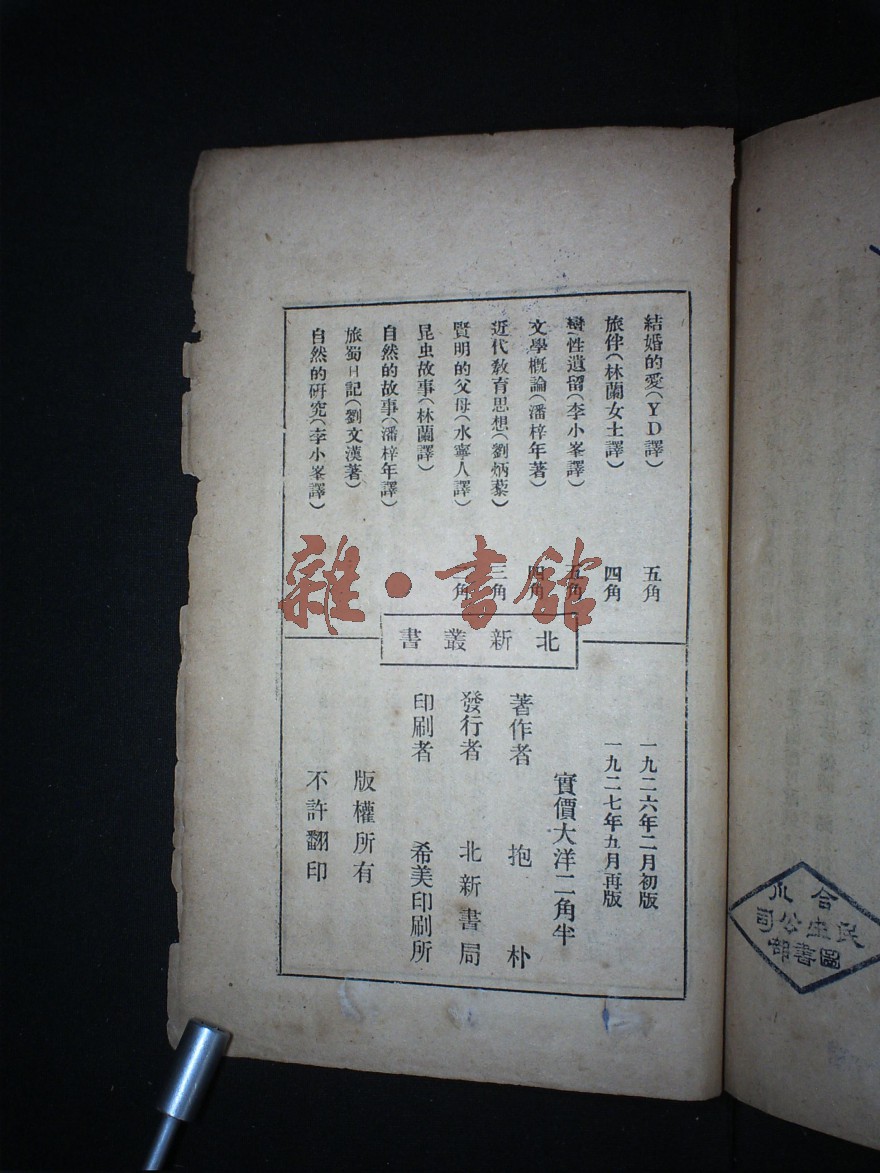 結婚的愛(YD譯) 五角
旅伴(林蘭女士譯) 四角
蠻性遺留(李小峯譯) 五角
文學概論(潘梓年著) 四角
近代敎育思想(劉炳藜) 三角
賢明的父母(水寧人譯) 二角
昆虫故事(林蘭譯)
自然的故事(潘梓年譯)
旅蜀日記(劉文漢著)
自然的硏究(李小峯譯)
北新叢書
一九二六年二月初版
一九二七年九月再版
實價大洋二角半
著作者 抱朴
發行者 北新書局
印刷者 希美印刷所
版權所有
不許翻印
雜·書館
合川
民生公司
圖書部